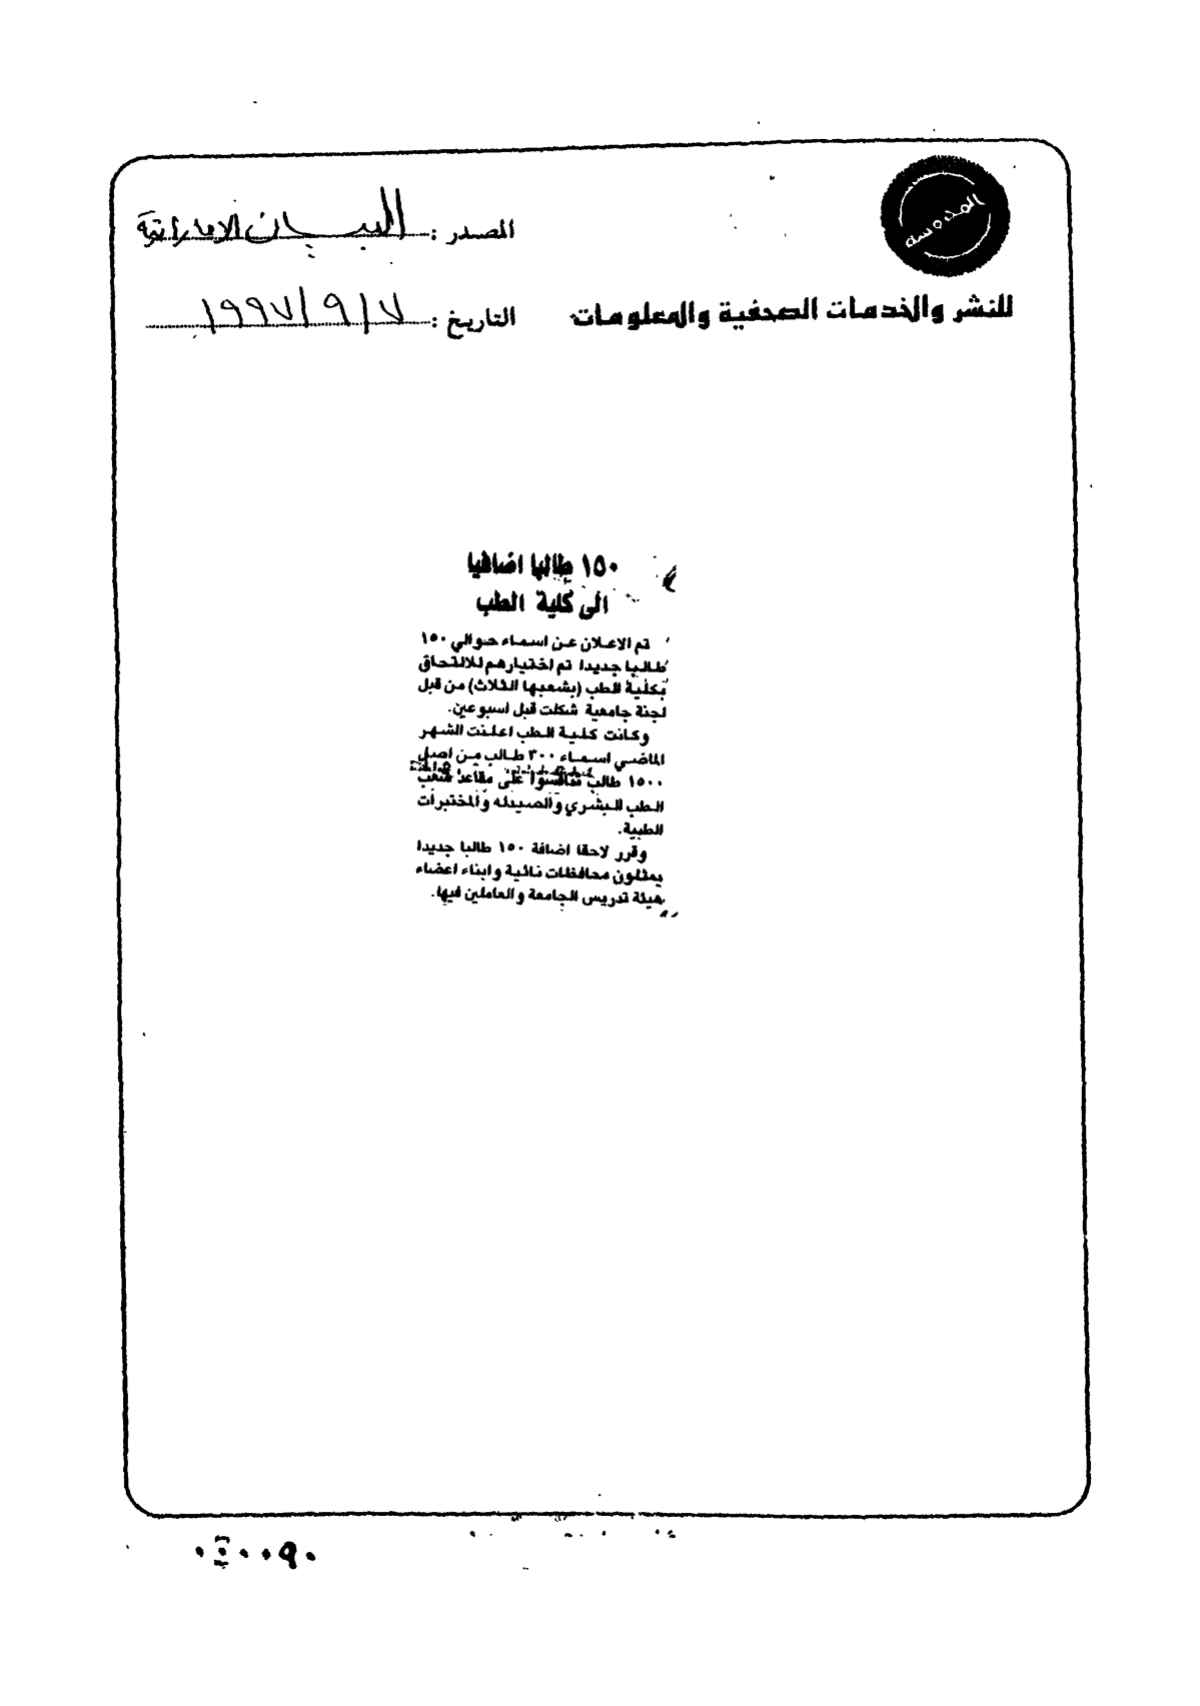 المصدر : البيان الاماراتية
للنشر والخدمات الصحفية والمعلومات
التاريخ : ١٩٩٧/٩/٧
١٥٠ طالبا اضافيا
الى كلية الطب
تم الاعلان عن اسماء حوالي ١٥٠
طالبا جديدا تم اختيارهم للالتحاق
بكلية الطب (بشعبها الثلاث) من قبل
لجنة جامعية شكلت قبل اسبوعين.
وكانت كلية الطب اعلنت الشهر
الماضي اسماء ٣٠٠ طالب من اصل
١٥٠٠ طالب تنافسوا على مقاعد شعب
الطب البشري والصيدله والمختبرات
الطبية.
وقرر لاحقا اضافة ١٥٠ طالبا جديدا
يمثلون محافظات نائية وابناء اعضاء
هيئة تدريس الجامعة والعاملين فيها.